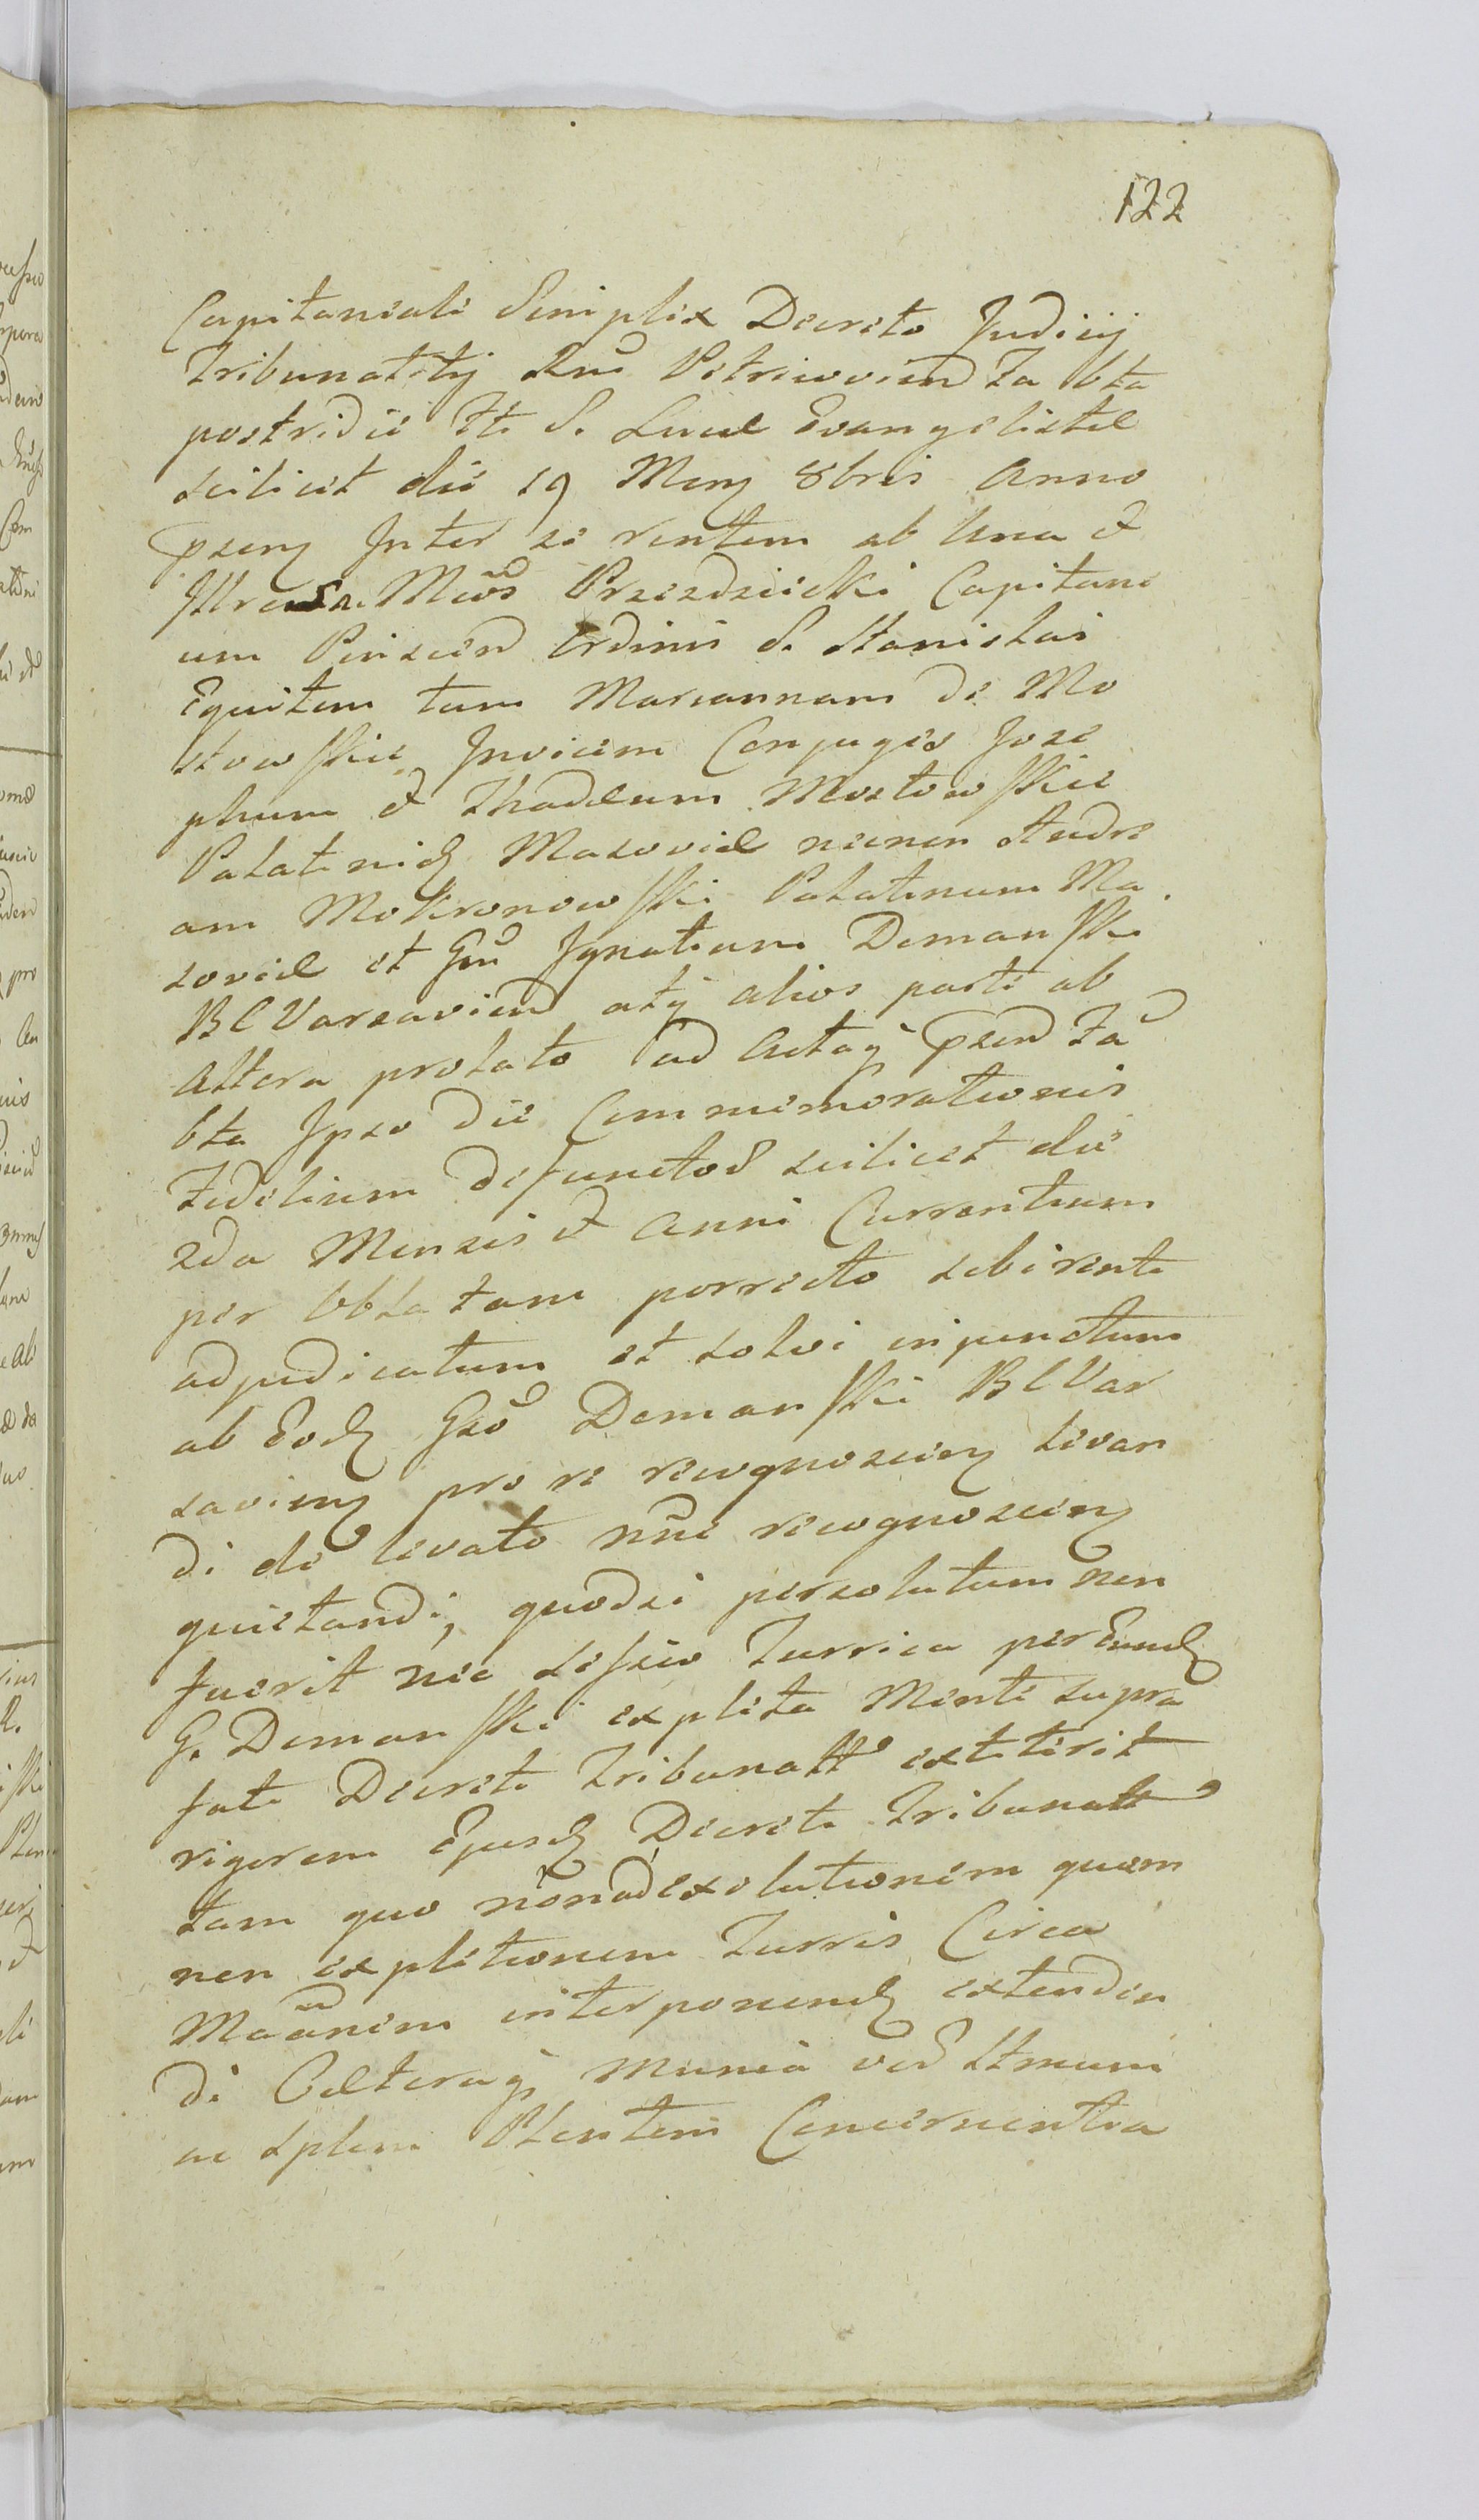 122
Capitaneali Simplex Decreto Judicij
Tribunalitij Rni Petricovien Fa bta
postridie Fti S. Lucae Evangelistae
scilicet die 19 Mens 8bris Anno
psens Inter se rentem ab Una et
Illres Mcos Przezdziecki Capitane
um Pinscen Ordinis S. Stanislai
Equitem tum Mariannam de Mo
stowskie Invicem Conjuges Jose
phum et Thadeum Mostowskie
Palatinid Masoviae necnon Andre
am Mokronowski Palatinum Ma
soviae et Gnu Ignatium Demanski
B C Varsavien atq alios parte ab
Altera prolato ad Actaq psen Fa
bta Ipso die Commemorationis
Fidelium defunctor scilicet die
2da Mensis et Anni Currentium
per Oblatam porrecto sibi rente
adjudicatum et solvi injunctum
ab Eod Gso Demanski B C Var
savien pro re recognoscen levan
di de levato nne recognoscen
quietandi, quodsi persolutum non
fuerit nec sessio Turrica per Eund
G. Demanski expleta Mente supra
fati Decreti Tribunatt extiterit
rigorem Ejusd Decreti Tribunatt
tam quo non ad exolutionem quam
non expletionem Turris Circa
Maanem interponend extenden
di Caeteraq munia ved Stmum
ac splem Plentem Concernentia